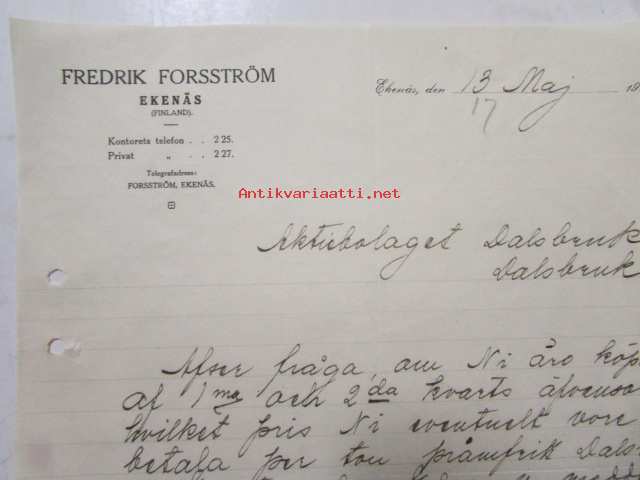 FREDRIK FORSSTRÖM
EKENÄS
(FINLAND).
Kontorets telefon . . 2 25.
Privat „ . . 2 27.
Telegrafadress:
FORSSTRÖM, EKENÄS.
Ekenäs, den 13 Maj 19
17
Antikvariaatti.net
Aktiebolaget Dalsbruk
Dalsbruk
fråga, om Ni äro köp
af 1 ma och 2 da kvarts äfvenso
hvilket pris Ni eventuelt vore
betala per ton pråmfritt Dals